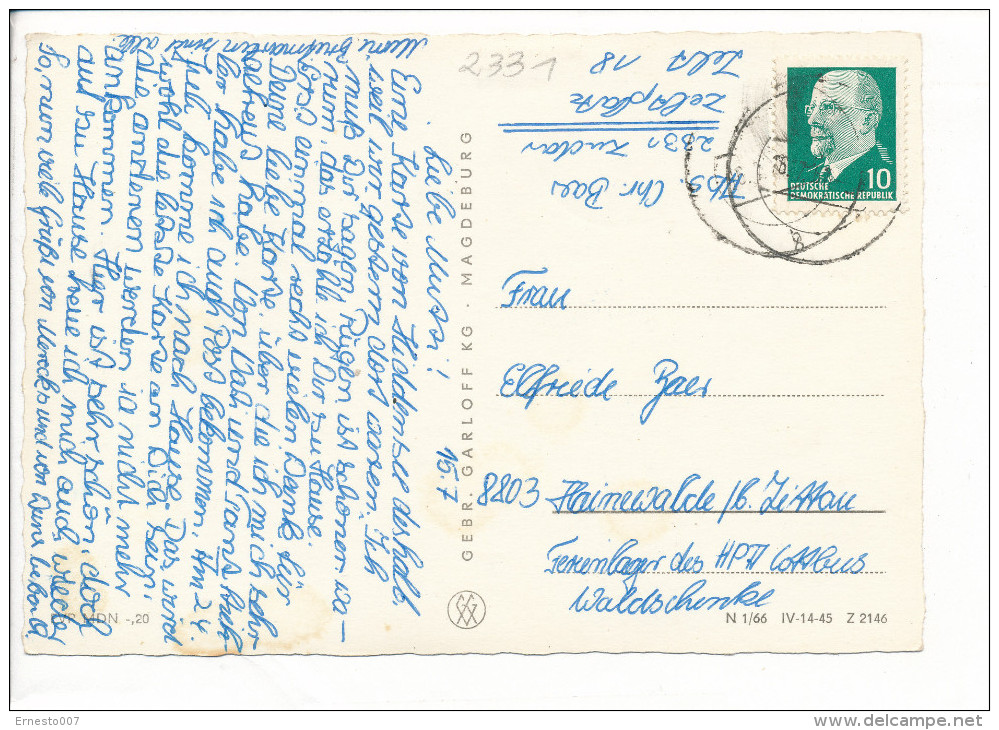 15.7
Liebe Mutti!
Eine Karte von Hiddensee deshalb,
weil wir gestern dort waren. Ich
muß Dir sagen Rügen ist schöner wa-
rum, das erzähl ich Dir zu Hause.
Erst einmal recht vielen Dank für
Deine liebe Karte, über die ich mich sehr
gefreut habe. Von Vati und Tante
habe ich auch Post bekommen. Am 24.
Juli komme ich nach Hause. Das wird
wohl die letzte Karte an Dich sein,
die anderen werden ja nicht mehr
ankommen. Hier ist sehr schön, doch
auf zu Hause freue ich mich auch wieder
So, nun viele Grüße von und von Deine
Meine Briefmarken sind alle.
2331
Abs. Chr. Baer
2331 Zudar
Zeltplatz
Zelt 18
DEUTSCHE
DEMOKRATISCHE REPUBLIK
10
Frau
Elfriede Baer
8803 Hainewalde /b. Zittau
Ferienlager des HPA Cottbus
Waldschenke
GEBR. GARLOFF KG · MAGDEBURG
VP MDN -,20
N 1/66 IV-14-45 Z 2146
Ernesto007
delcampe.net